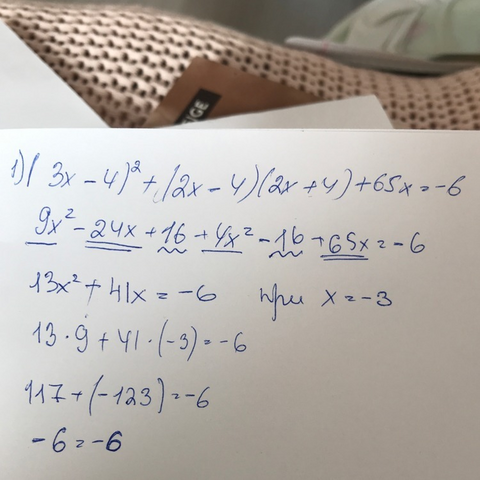 IGE
1) (3x - 4)² + (2x - 4)(2x + 4) + 65x = -6
9x² - 24x + 16 + 4x² - 16 + 65x = -6
13x² + 41x = -6 при x = -3
13 · 9 + 41 · (-3) = -6
117 + (-123) = -6
-6 = -6